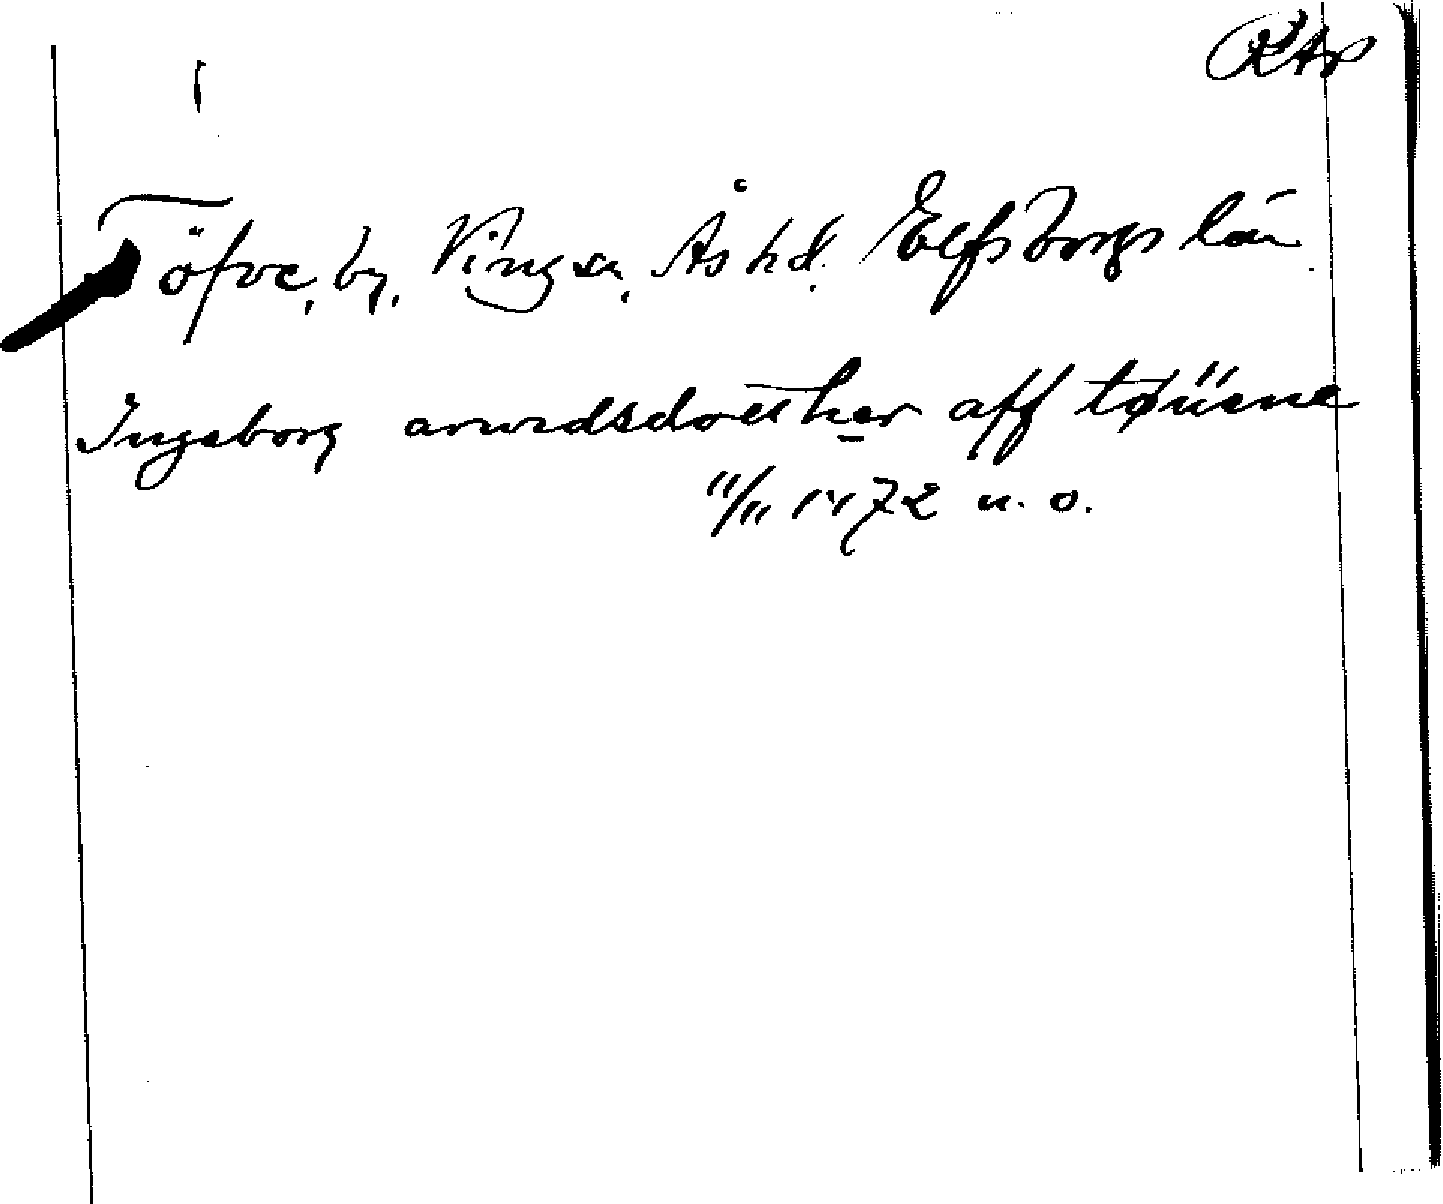 RAp
Töfve, by, Vings sn, Ås hd. Elfsborgs län.
Ingeborg aruedsdotther aff tøüene
11/11 1472 u. o.